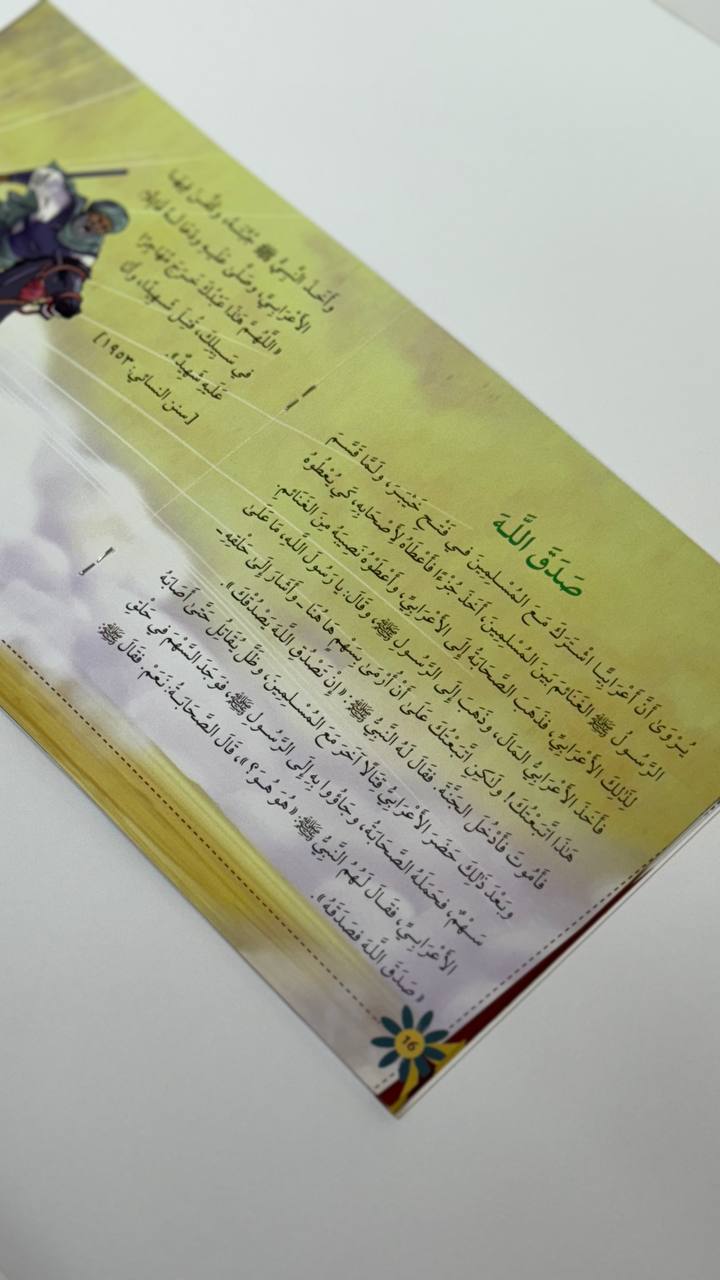 صَدَقَ اللَّهَ
يُرْوَىٰ أَنَّ أَعْرَابِيًّا اشْتَرَكَ مَعَ المُسْلِمِينَ في فَتْحِ خَيْبَرَ، وَلَمَّا قَسَّمَ
الرَّسُولُ ﷺ الغَنَائِمَ بَيْنَ المُسْلِمِينَ، أَخَذَ جُزْءًا فَأَعْطَاهُ لِأَصْحَابِهِ، كَيْ يُعْطُوهُ
لِذَلِكَ الأَعْرَابِيِّ، فَذَهَبَ الصَّحَابَةُ إِلَى الأَعْرَابِيِّ، وَأَعْطَوْهُ نَصِيبَهُ مِنَ الغَنَائِمِ.
فَأَخَذَ الأَعْرَابِيُّ المَالَ، وَذَهَبَ إِلَى الرَّسُولِ ﷺ، وَقَالَ: يا رَسُولَ اللَّهِ، مَا عَلَىٰ
هَذَا اتَّبَعْتُكَ! وَلَكِنِ اتَّبَعْتُكَ عَلَىٰ أَنْ أُرْمَىٰ بِسَهْمٍ هَا هُنَا ـ وَأَشَارَ إِلَىٰ حَلْقِهِ ـ
فَأَمُوتَ فَأَدْخُلَ الجَنَّةَ. فَقَالَ لَهُ النَّبِيُّ ﷺ: «إِن تَصْدُقِ اللَّهَ يَصْدُقْكَ».
وَبَعْدَ ذَلِكَ حَضَرَ الأَعْرَابِيُّ قِتَالًا آخَرَ مَعَ المُسْلِمِينَ، وَظَلَّ يُقَاتِلُ حَتَّىٰ أَصَابَهُ
سَهْمٌ، فَحَمَلَهُ الصَّحَابَةُ، وَجَاؤُوا بِهِ إِلَى الرَّسُولِ ﷺ، فَوَجَدَ السَّهْمَ فِي حَلْقِ
الأَعْرَابِيِّ، فَقَالَ لَهُمُ النَّبِيُّ ﷺ: «هُوَ هُوَ؟»، قَالَ الصَّحَابَةُ: نَعَمْ. فَقَالَ ﷺ:
«صَدَقَ اللَّهَ فَصَدَقَهُ».
16
وَأَخَذَ النَّبِيُّ ﷺ جُبَّتَهُ، وَكَفَّنَ فِيهَا
الأَعْرَابِيَّ، وَصَلَّىٰ عَلَيْهِ وَدَعَا لَهُ قَائِلًا:
«اللَّهُمَّ هَذَا عَبْدُكَ خَرَجَ مُهَاجِرًا
فِي سَبِيلِكَ، فَقُتِلَ شَهِيدًا، وَأَنَا
عَلَيْهِ شَهِيدٌ».
[سنن النسائي: ١٩٥٣]